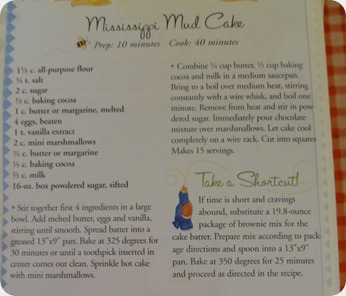 Mississippi Mud Cake
Prep: 10 minutes Cook: 40 minutes
1½ c. all-purpose flour
¼ t. salt
2 c. sugar
½ c. baking cocoa
1 c. butter or margarine, melted
4 eggs, beaten
1 t. vanilla extract
2 c. mini marshmallows
¼ c. butter or margarine
½ c. baking cocoa
⅓ c. milk
16-oz. box powdered sugar, sifted
• Stir together first 4 ingredients in a large
bowl. Add melted butter, eggs and vanilla,
stirring until smooth. Spread batter into a
greased 13"x9" pan. Bake at 325 degrees for
30 minutes or until a toothpick inserted in
center comes out clean. Sprinkle hot cake
with mini marshmallows.
• Combine ¼ cup butter, ⅓ cup baking
cocoa and milk in a medium saucepan.
Bring to a boil over medium heat, stirring
constantly with a wire whisk, and boil one
minute. Remove from heat and stir in pow
dered sugar. Immediately pour chocolate
mixture over marshmallows. Let cake cool
completely on a wire rack. Cut into squares
Makes 15 servings.
Take a Shortcut!
If time is short and cravings
abound, substitute a 19.8-ounce
package of brownie mix for the
cake batter. Prepare mix according to pack
age directions and spoon into a 13"x9"
pan. Bake at 350 degrees for 25 minutes
and proceed as directed in the recipe.